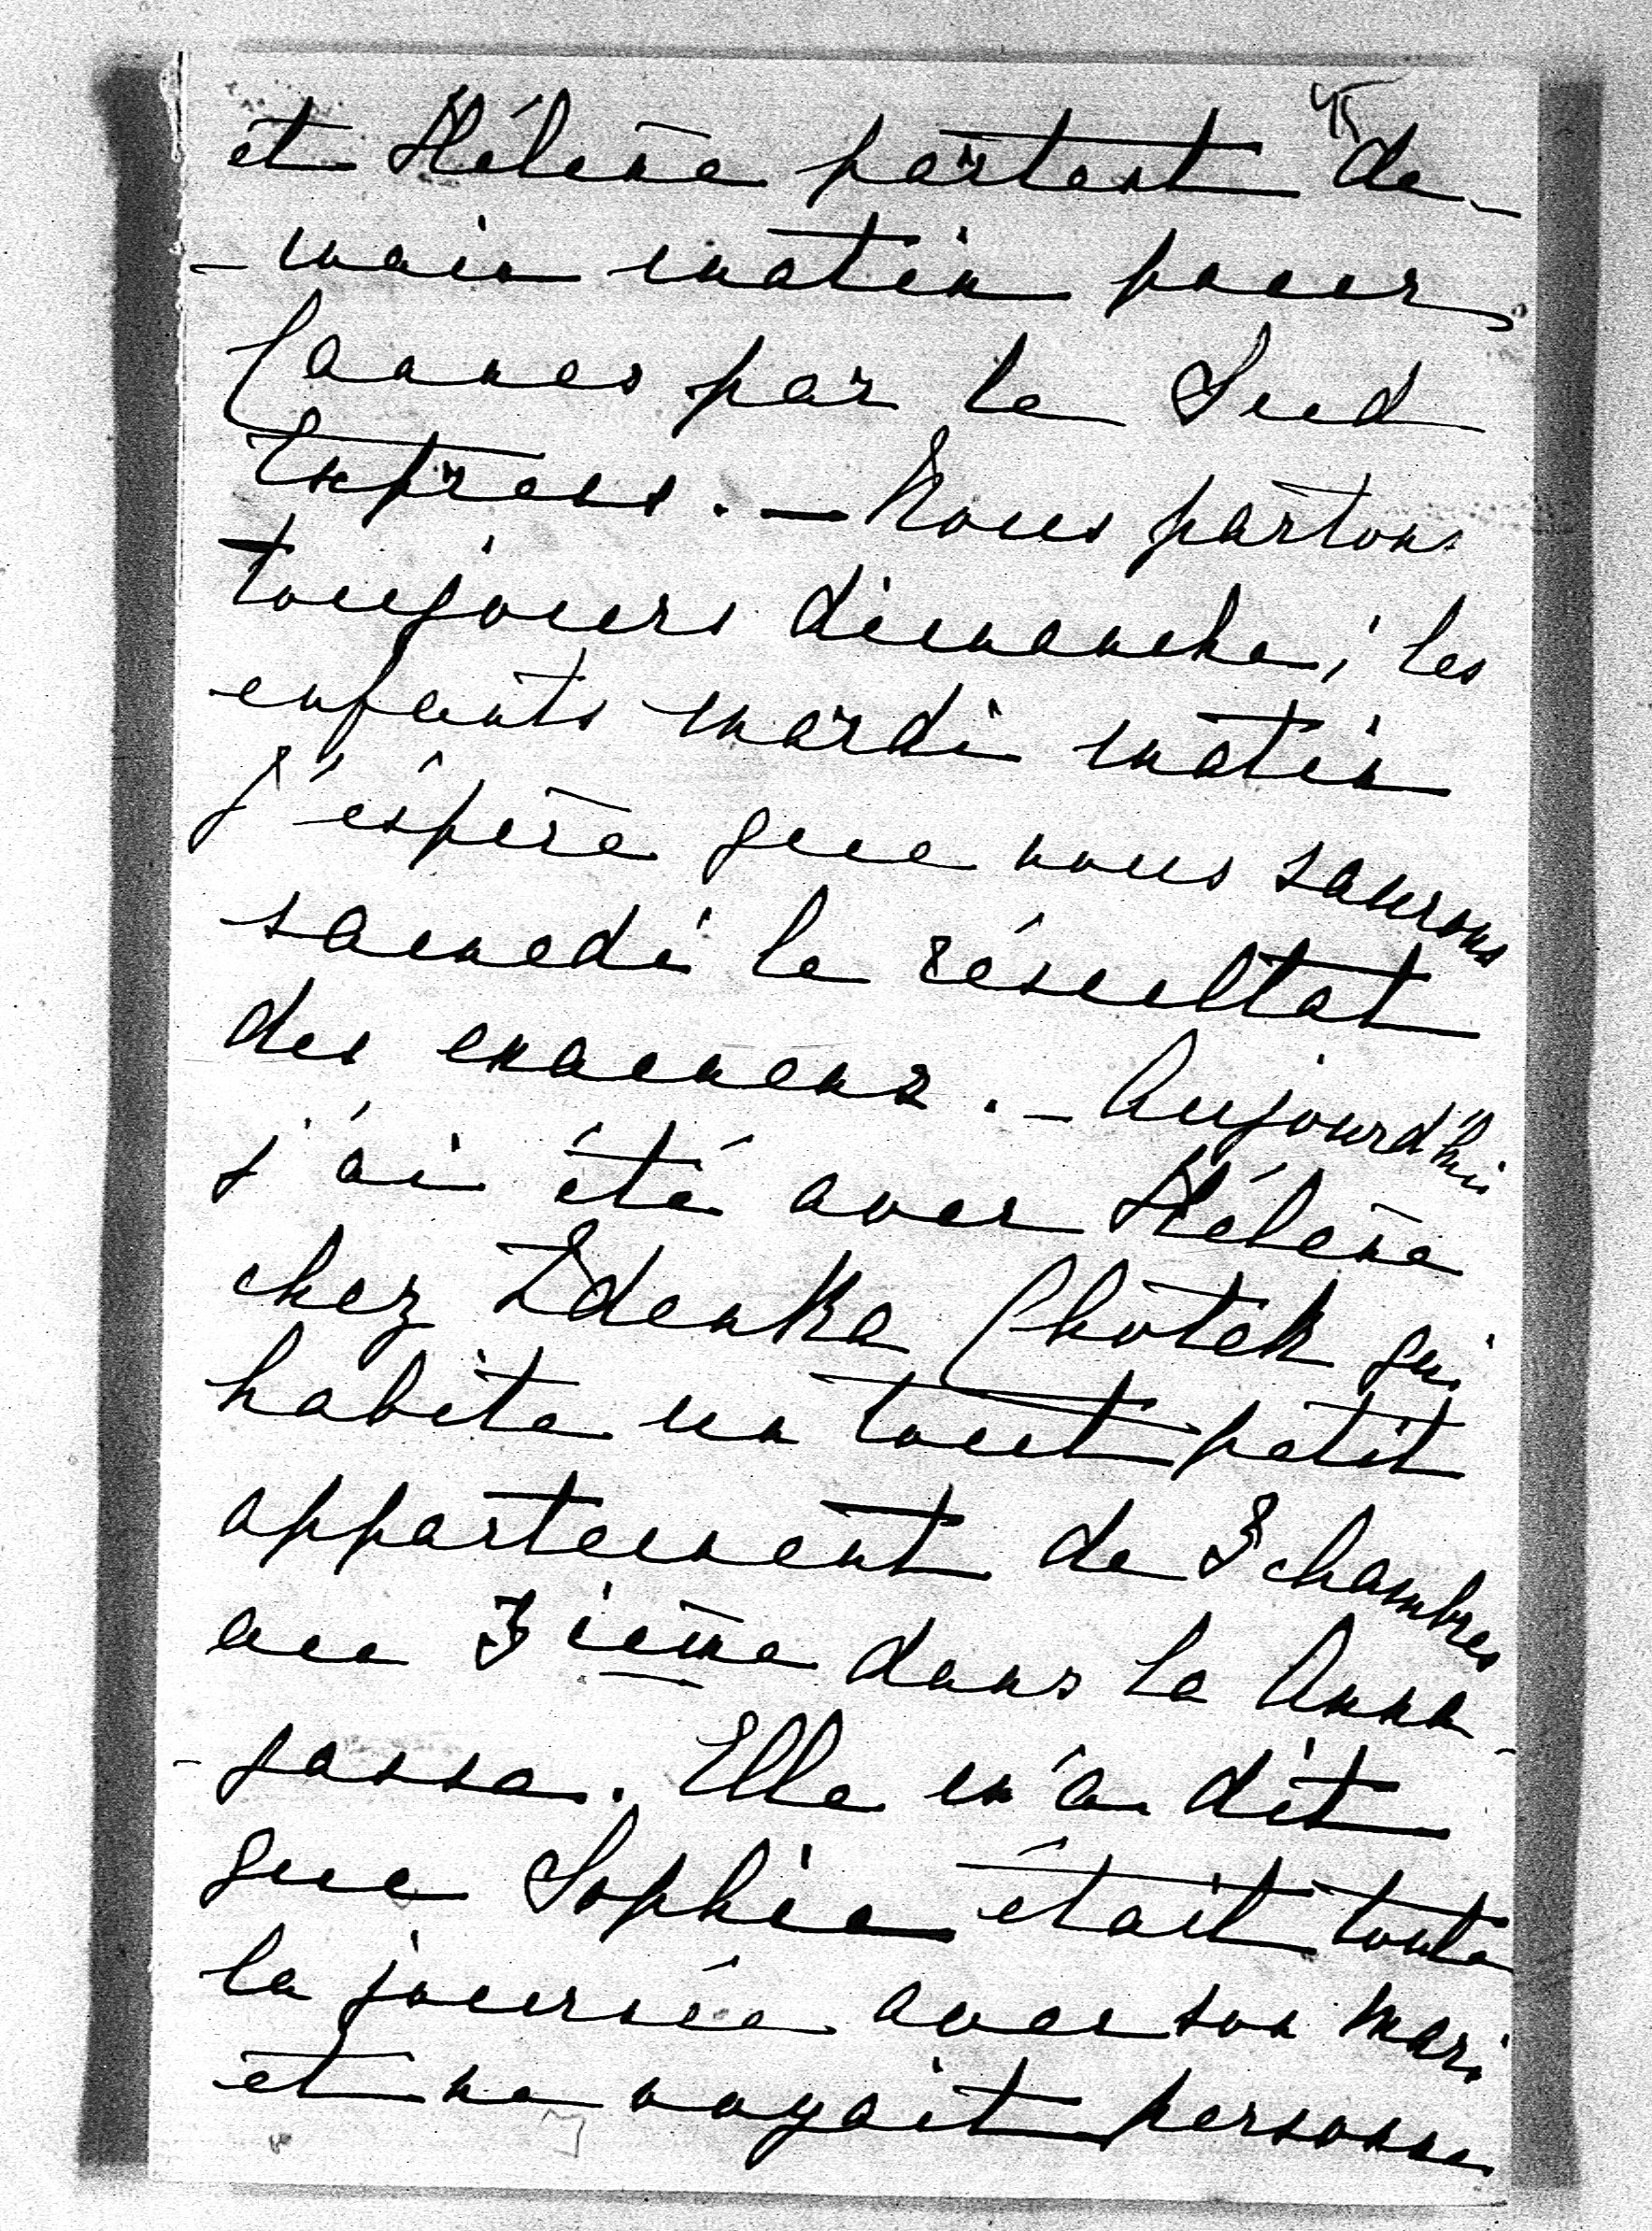 45
et Hélène partent de-
-main matin pour
Cannes par le Sud
Express. - Nous partons
toujours dimanche, les
enfants mardi matin
j'éspère que nous saurons
samedi le résultat
des examens. - Aujourd'hui
j'ai été avec Hélène
chez Zdenka Chotek qui
habite un tout petit
appartement de 3 chambres
au 3ième dans la Anna-
-gasse. Elle m'a dit
que Sophie était toute
la journée avec son mari
et ne voyait personne